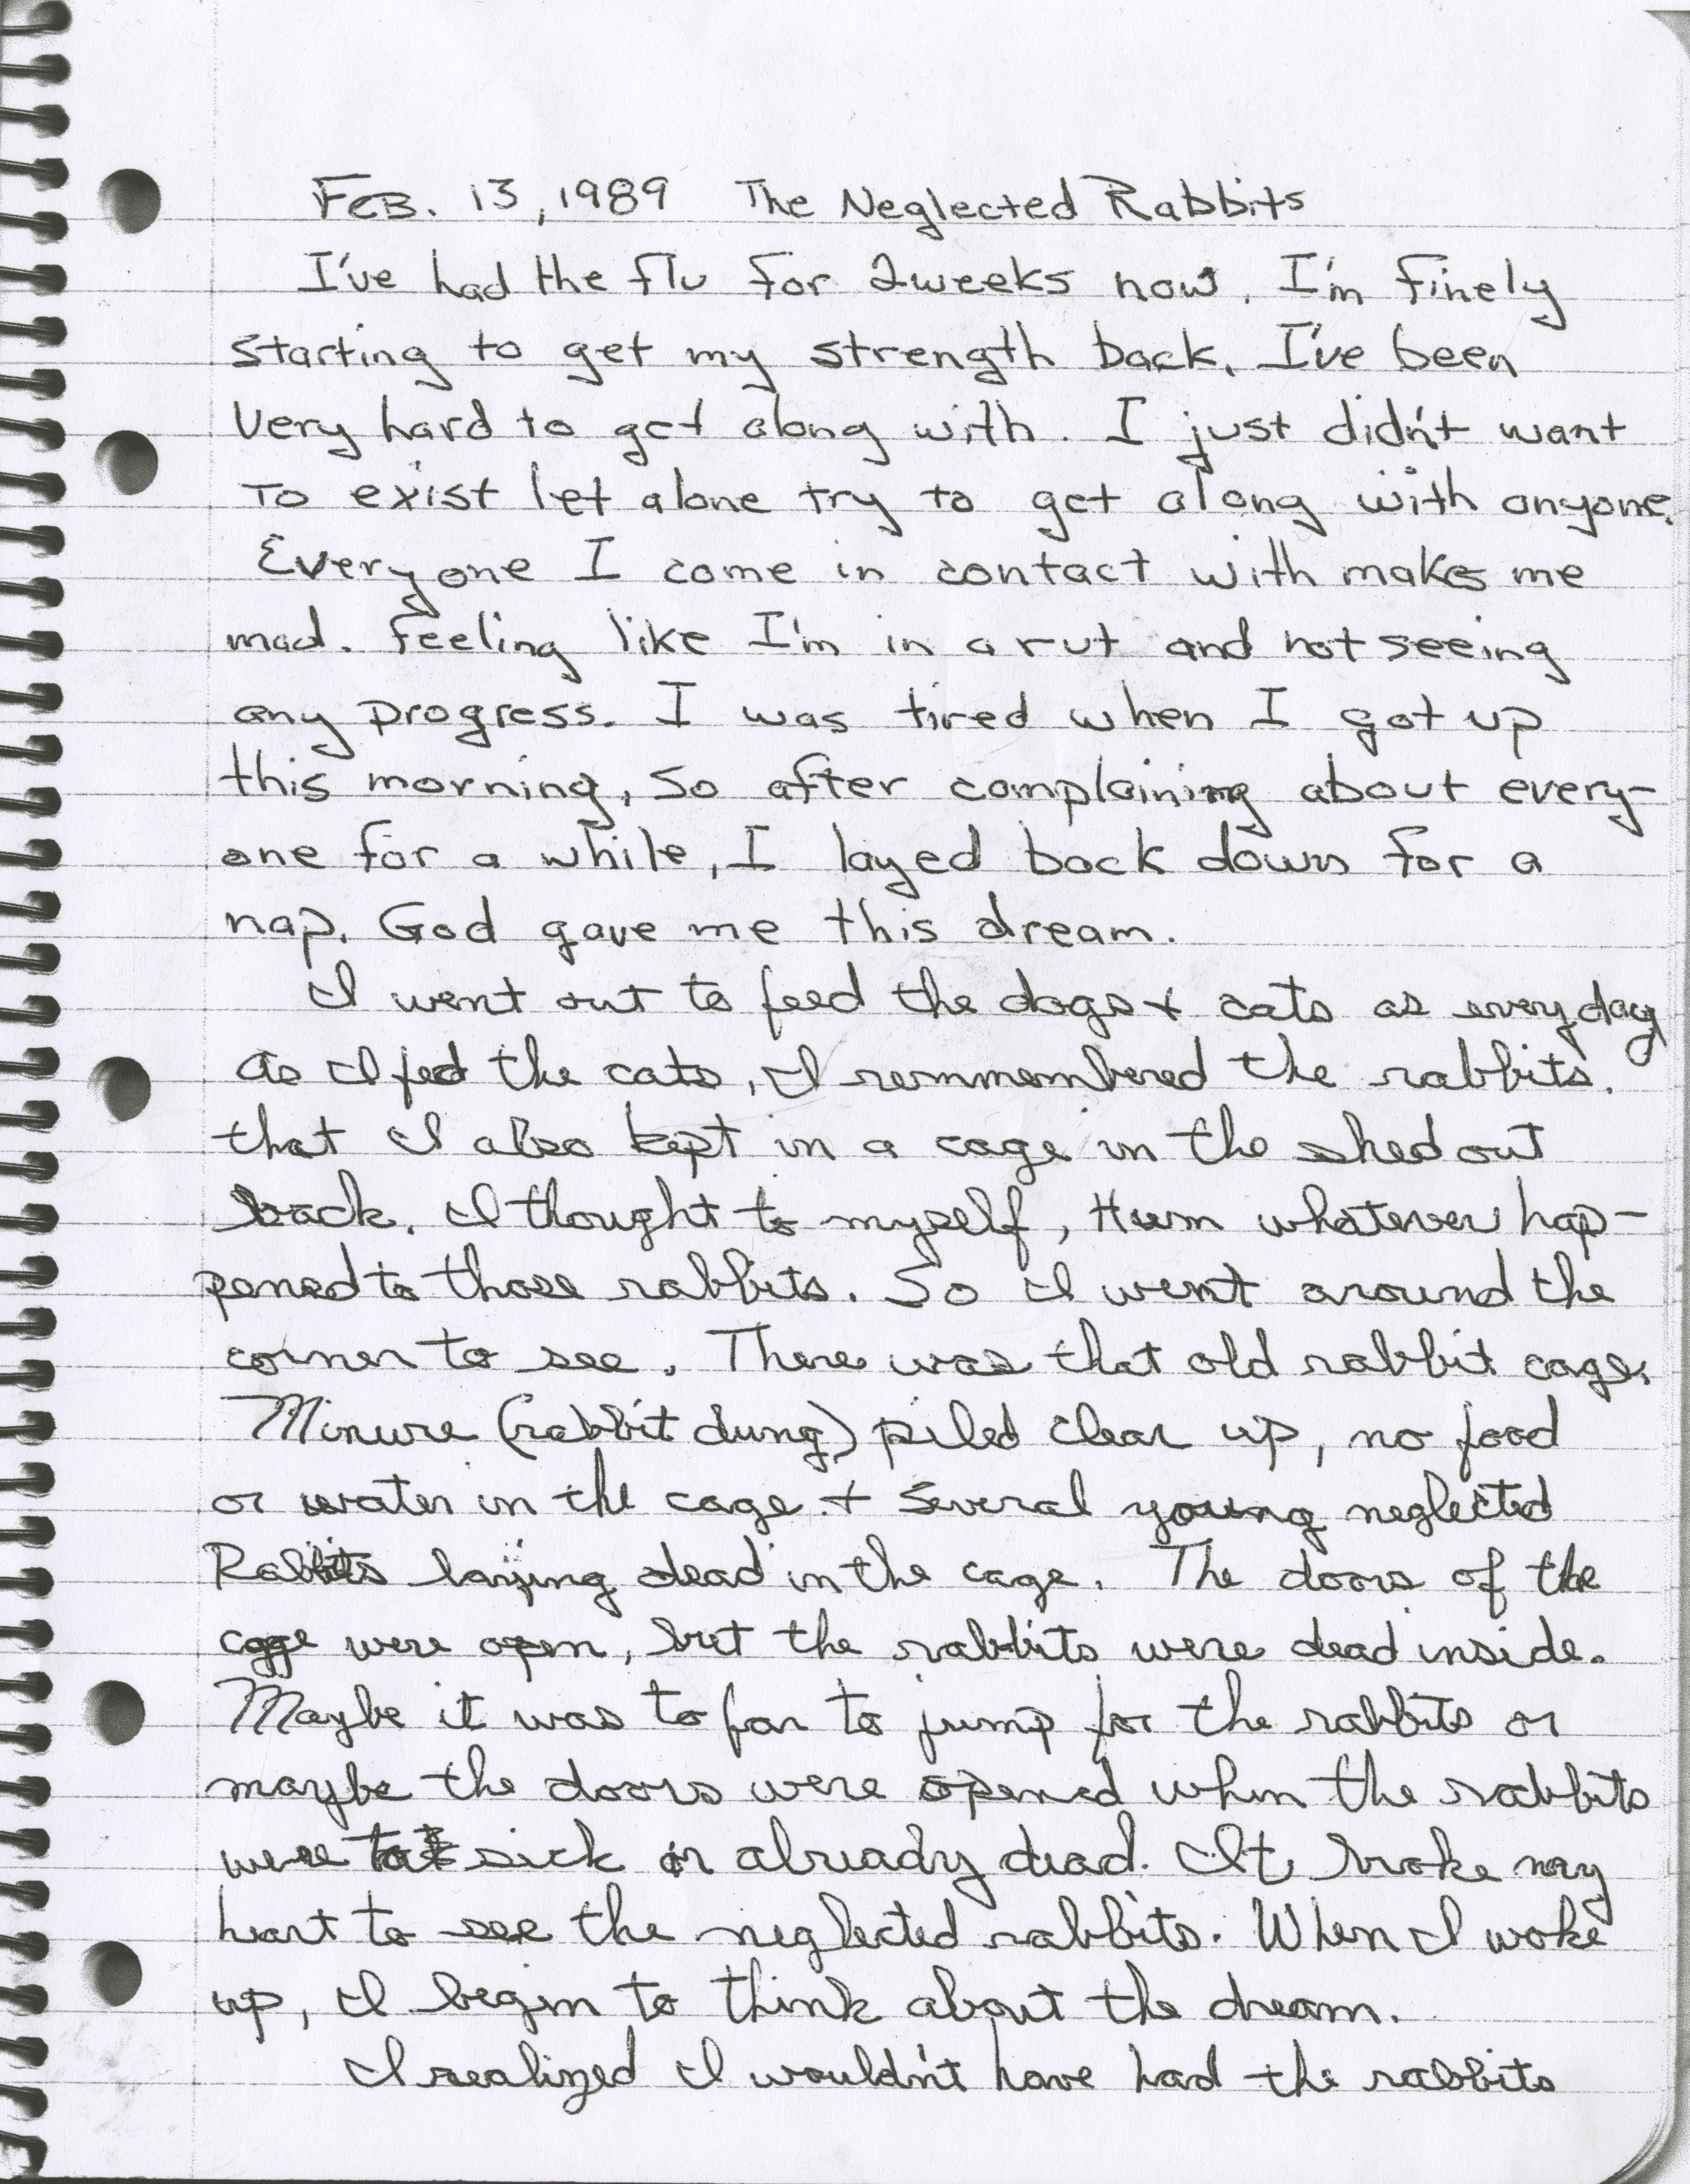 Feb. 13, 1989 The Neglected Rabbits
I've had the flu for 2weeks now. I'm finely
starting to get my strength back. I've been
very hard to get along with. I just didn't want
to exist let alone try to get along with anyone.
Everyone I come in contact with makes me
mad. Feeling like I'm in a rut and not seeing
any progress. I was tired when I got up
this morning, so after complaining about every-
one for a while, I layed back down for a
nap. God gave me this dream.
I went out to feed the dogs + cats as everyday
as I fed the cats, I remmembered the rabbits.
that I also kept in a cage in the shed out
back. I thought to myself, Hum whatever hap-
pened to those rabbits. So I went around the
corner to see. There was that old rabbit cage.
Minure (rabbit dung) piled clear up, no food
or water in the cage + several young neglected
Rabbits laying dead in the cage. The doors of the
cage were open, but the rabbits were dead inside.
Maybe it was to far to jump for the rabbits or
maybe the doors were opened when the rabbits
were sick or already dead. It broke my
heart to see the neglected rabbits. When I woke
up, I begin to think about the dream.
I realized I wouldn't have had the rabbits